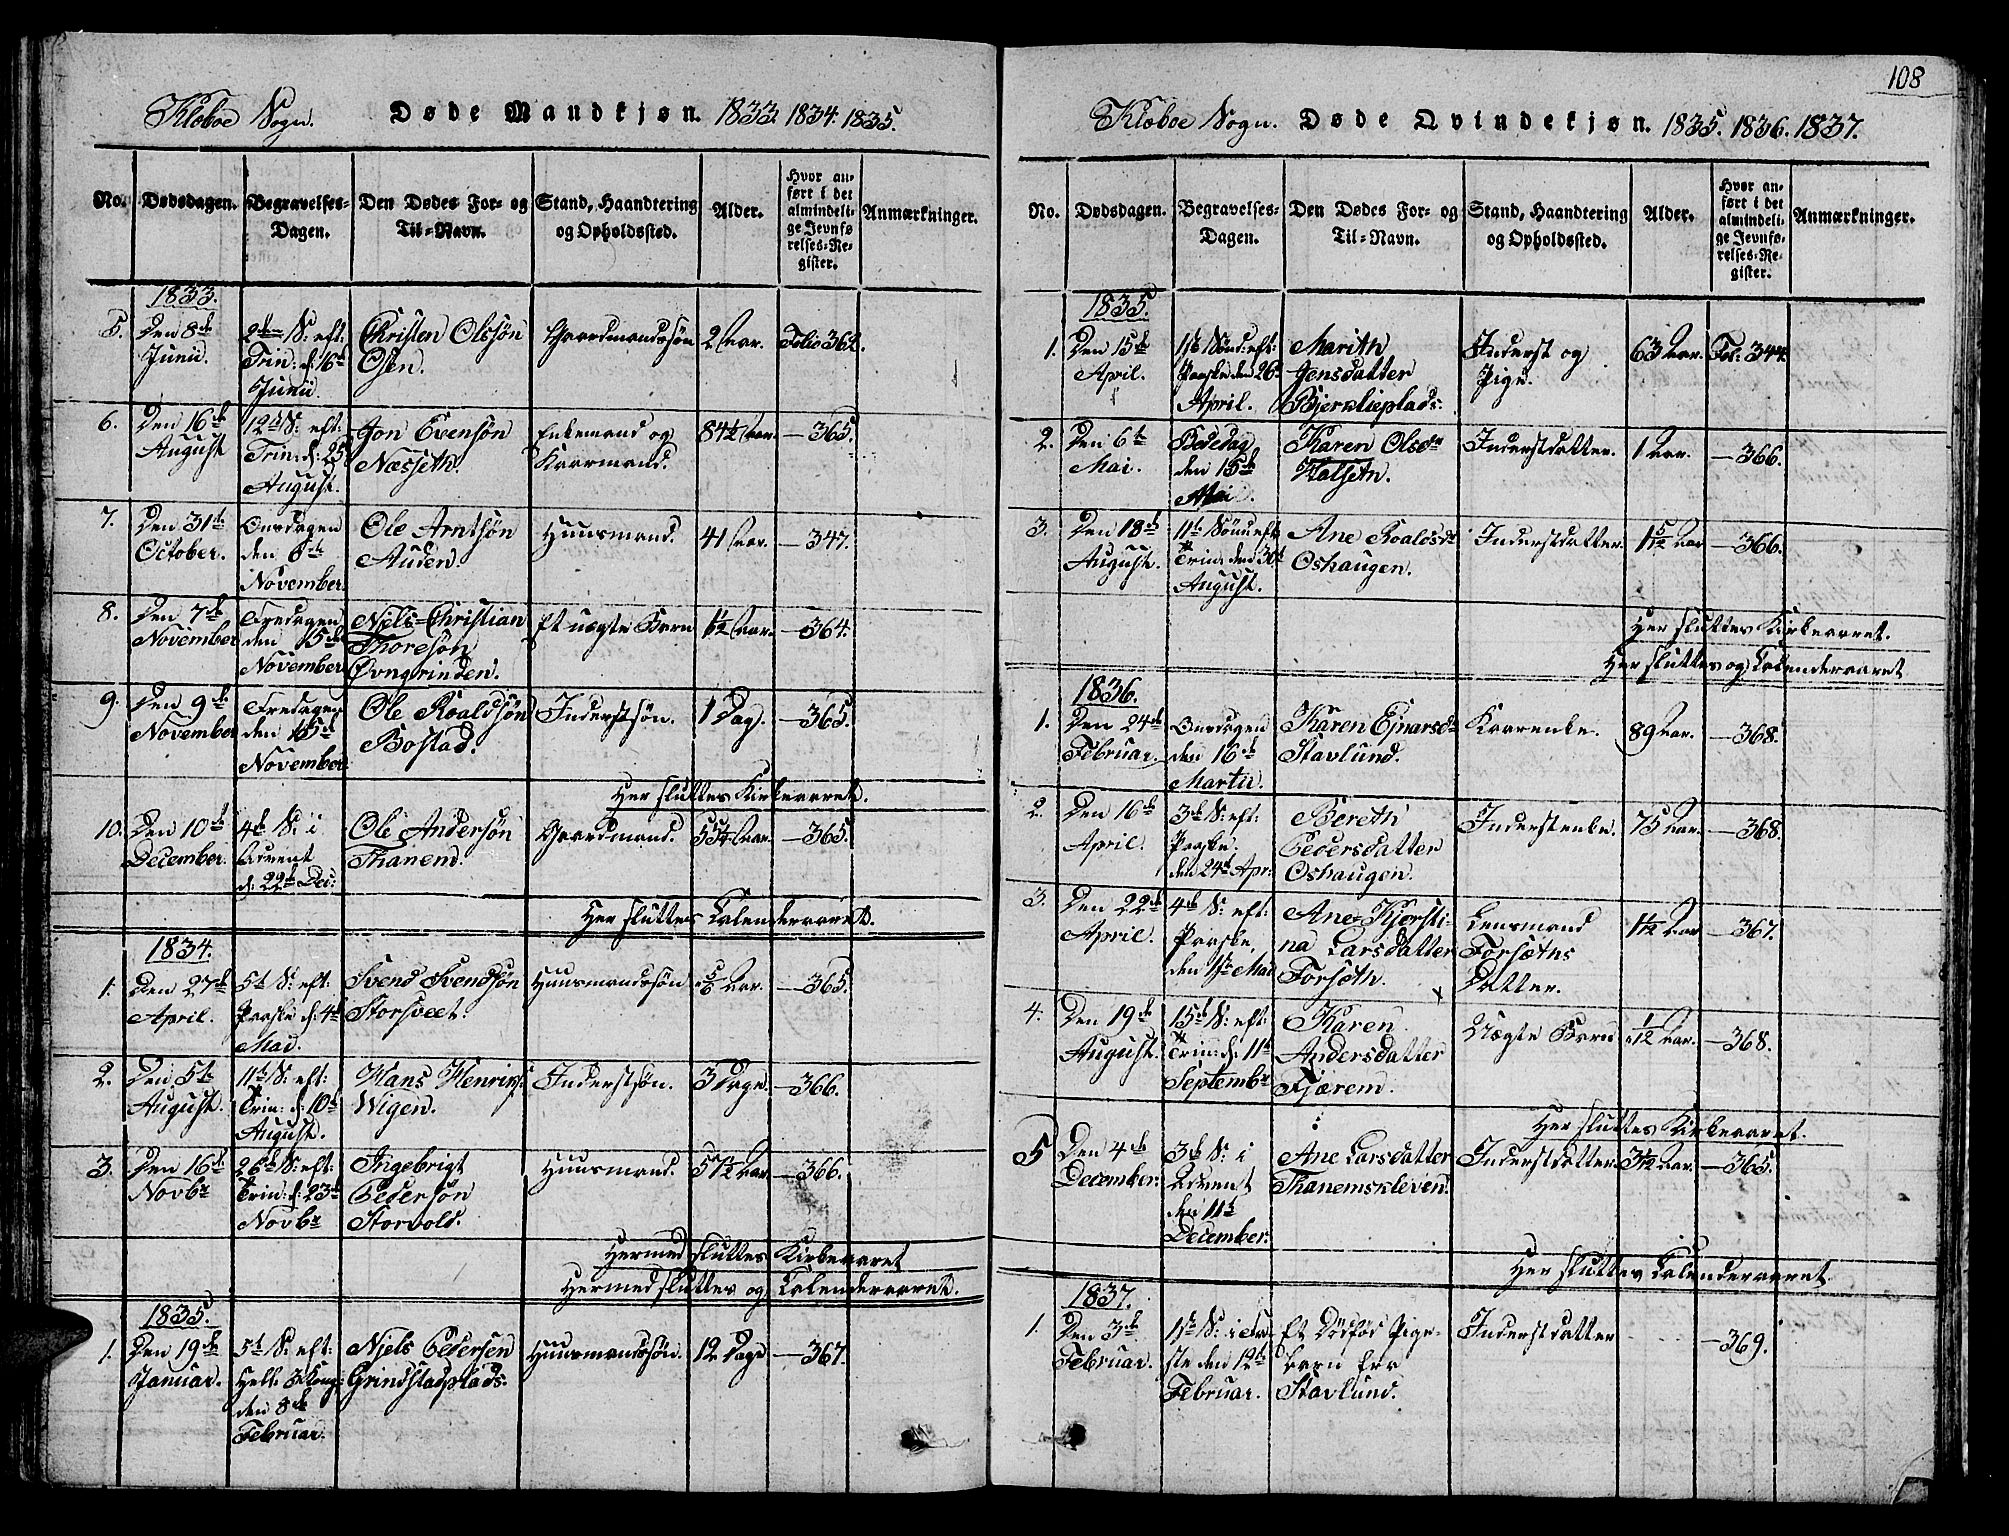 Klæboe Sogn. Døde Mandkjøn. 1833. 1834. 1835.
No. Dødsdagen. Begravelses-Dagen. Den Dødes For- og Til-Navn. Stand, Haandtering og Opholdssted. Alder. Hvor anført i det almindelige Jevnførelses-Register. Anmærkninger.
1833.
5. Den 8de Junii. 2den S: eft: Trin: d: 16de Junii. Christen Olssøn Osen. Gaardmandssøn 2 Aar. Folio 364.
6. Den 16de August 12te S: eft: Trin: d: 25 August. Jon Evensøn Næsseth. Enkemand og Kaarmand. 84½ Aar. — 365.
7. Den 31te October. Onsdagen den 6te November. Ole Arntsøn Auden. Huusmand. 41 Aar. — 347.
8. Den 7de November Fredagen den 15de November. Niels-Christian Thoresøn Øvngrinden. Et uægte Barn 1½ Aar. — 364.
9. Den 9de November Fredagen den 15de November. Ole Roaldsøn Bostad. Inderstsøn. 1 Dag. — 365.
Her sluttes Kirkeaaret.
10. Den 10de December. 4de S: i Advent d: 22de Dec: Ole Andersøn Thanem. Gaardmand. 55¼ Aar. — 365.
Her sluttes Calenderaaret.
1834.
1. Den 27de April. 5te S: eft: Paaske d: 4de Mai. Svend Svendsøn Storsveet. Huusmandssøn 5/6 Aar. — 365.
2. Den 5te August. 11te S: eft: Trin: d: 10de August. Hans Henriks: Wigen. Inderstsøn. 3 Dage. — 366.
3. Den 16de Novbr 26de S: eft: Trin: d: 23de Novbr Ingebrigt Pedersøn Storvold. Huusmand. 57½ Aar. — 366.
Hermed sluttes Kirkeaaret
Hermed sluttes og Calenderaaret.
1835.
1. Den 19de Januar. 5te S: eft Hell: 3 Kong: den 8de Februar. Niels Pedersen Grindstadplads. Huusmandssøn. 12 Dage — 367.
108
Klæboe Sogn. Døde Qvindekjøn. 1835. 1836. 1837.
No. Dødsdagen. Begravelses-Dagen. Den Dødes For- og Til-Navn. Stand, Haandtering og Opholdssted. Alder. Hvor anført i det almindelige Jevnførelses-Register. Anmærkninger.
1835.
1. Den 15de April. 1ste Sønd: eft: Paaske den 26de April. Marith Jensdatter Bjerklieplads: Inderst og Pige. 63 Aar. Fol: 344.
2. Den 6te Mai. Bededag den 15de Mai. Karen Olsdr Halseth. Inderstdatter. 1 Aar. — 366.
3. Den 18de August. 11te Sønd: eft Trin: den 30te August. Ane Roaldsdr Oshaugen. Inderstdatter. 1 5/12 Aar — 366.
Her sluttes Kirkeaaret.
Her sluttes og Calenderaaret
1836.
1. Den 24de Februar. Onsdagen den 16de Martii. Karen Ejnarsdr Stavlund. Kaarenke. 89 Aar. — 368.
2. Den 16de April. 3de S: eft: Paaske. den 24de Apr: Bereth Pedersdatter Oshaugen. Inderstenke. 75 Aar. — 368.
3. Den 22de April. 4de S: eft: Paaske. den 1ste Mai Ane Kjerstina Larsdatter Forsæth. Lensmand Forsæths Datter. 1½ Aar — 367.
4. Den 19de August. 15de S: eft: Trin: d: 11te Septembr Karen Andersdatter Fjærem. Uægte Barn 1/12 Aar. — 368.
Her sluttes Kirkeaaret.
5 Den 4de December. 3de S: i Advent den 11te December. Ane Larsdatter Thanemskleven. Inderstdatter. 3½ Aar. — 365.
Her sluttes Calenderaaret
1837.
1. Den 3de Februar. 1ste S: i Faste den 12te Februar. Et Dødfød Pigebarn fra Stavlund. Inderstdatter — 369.